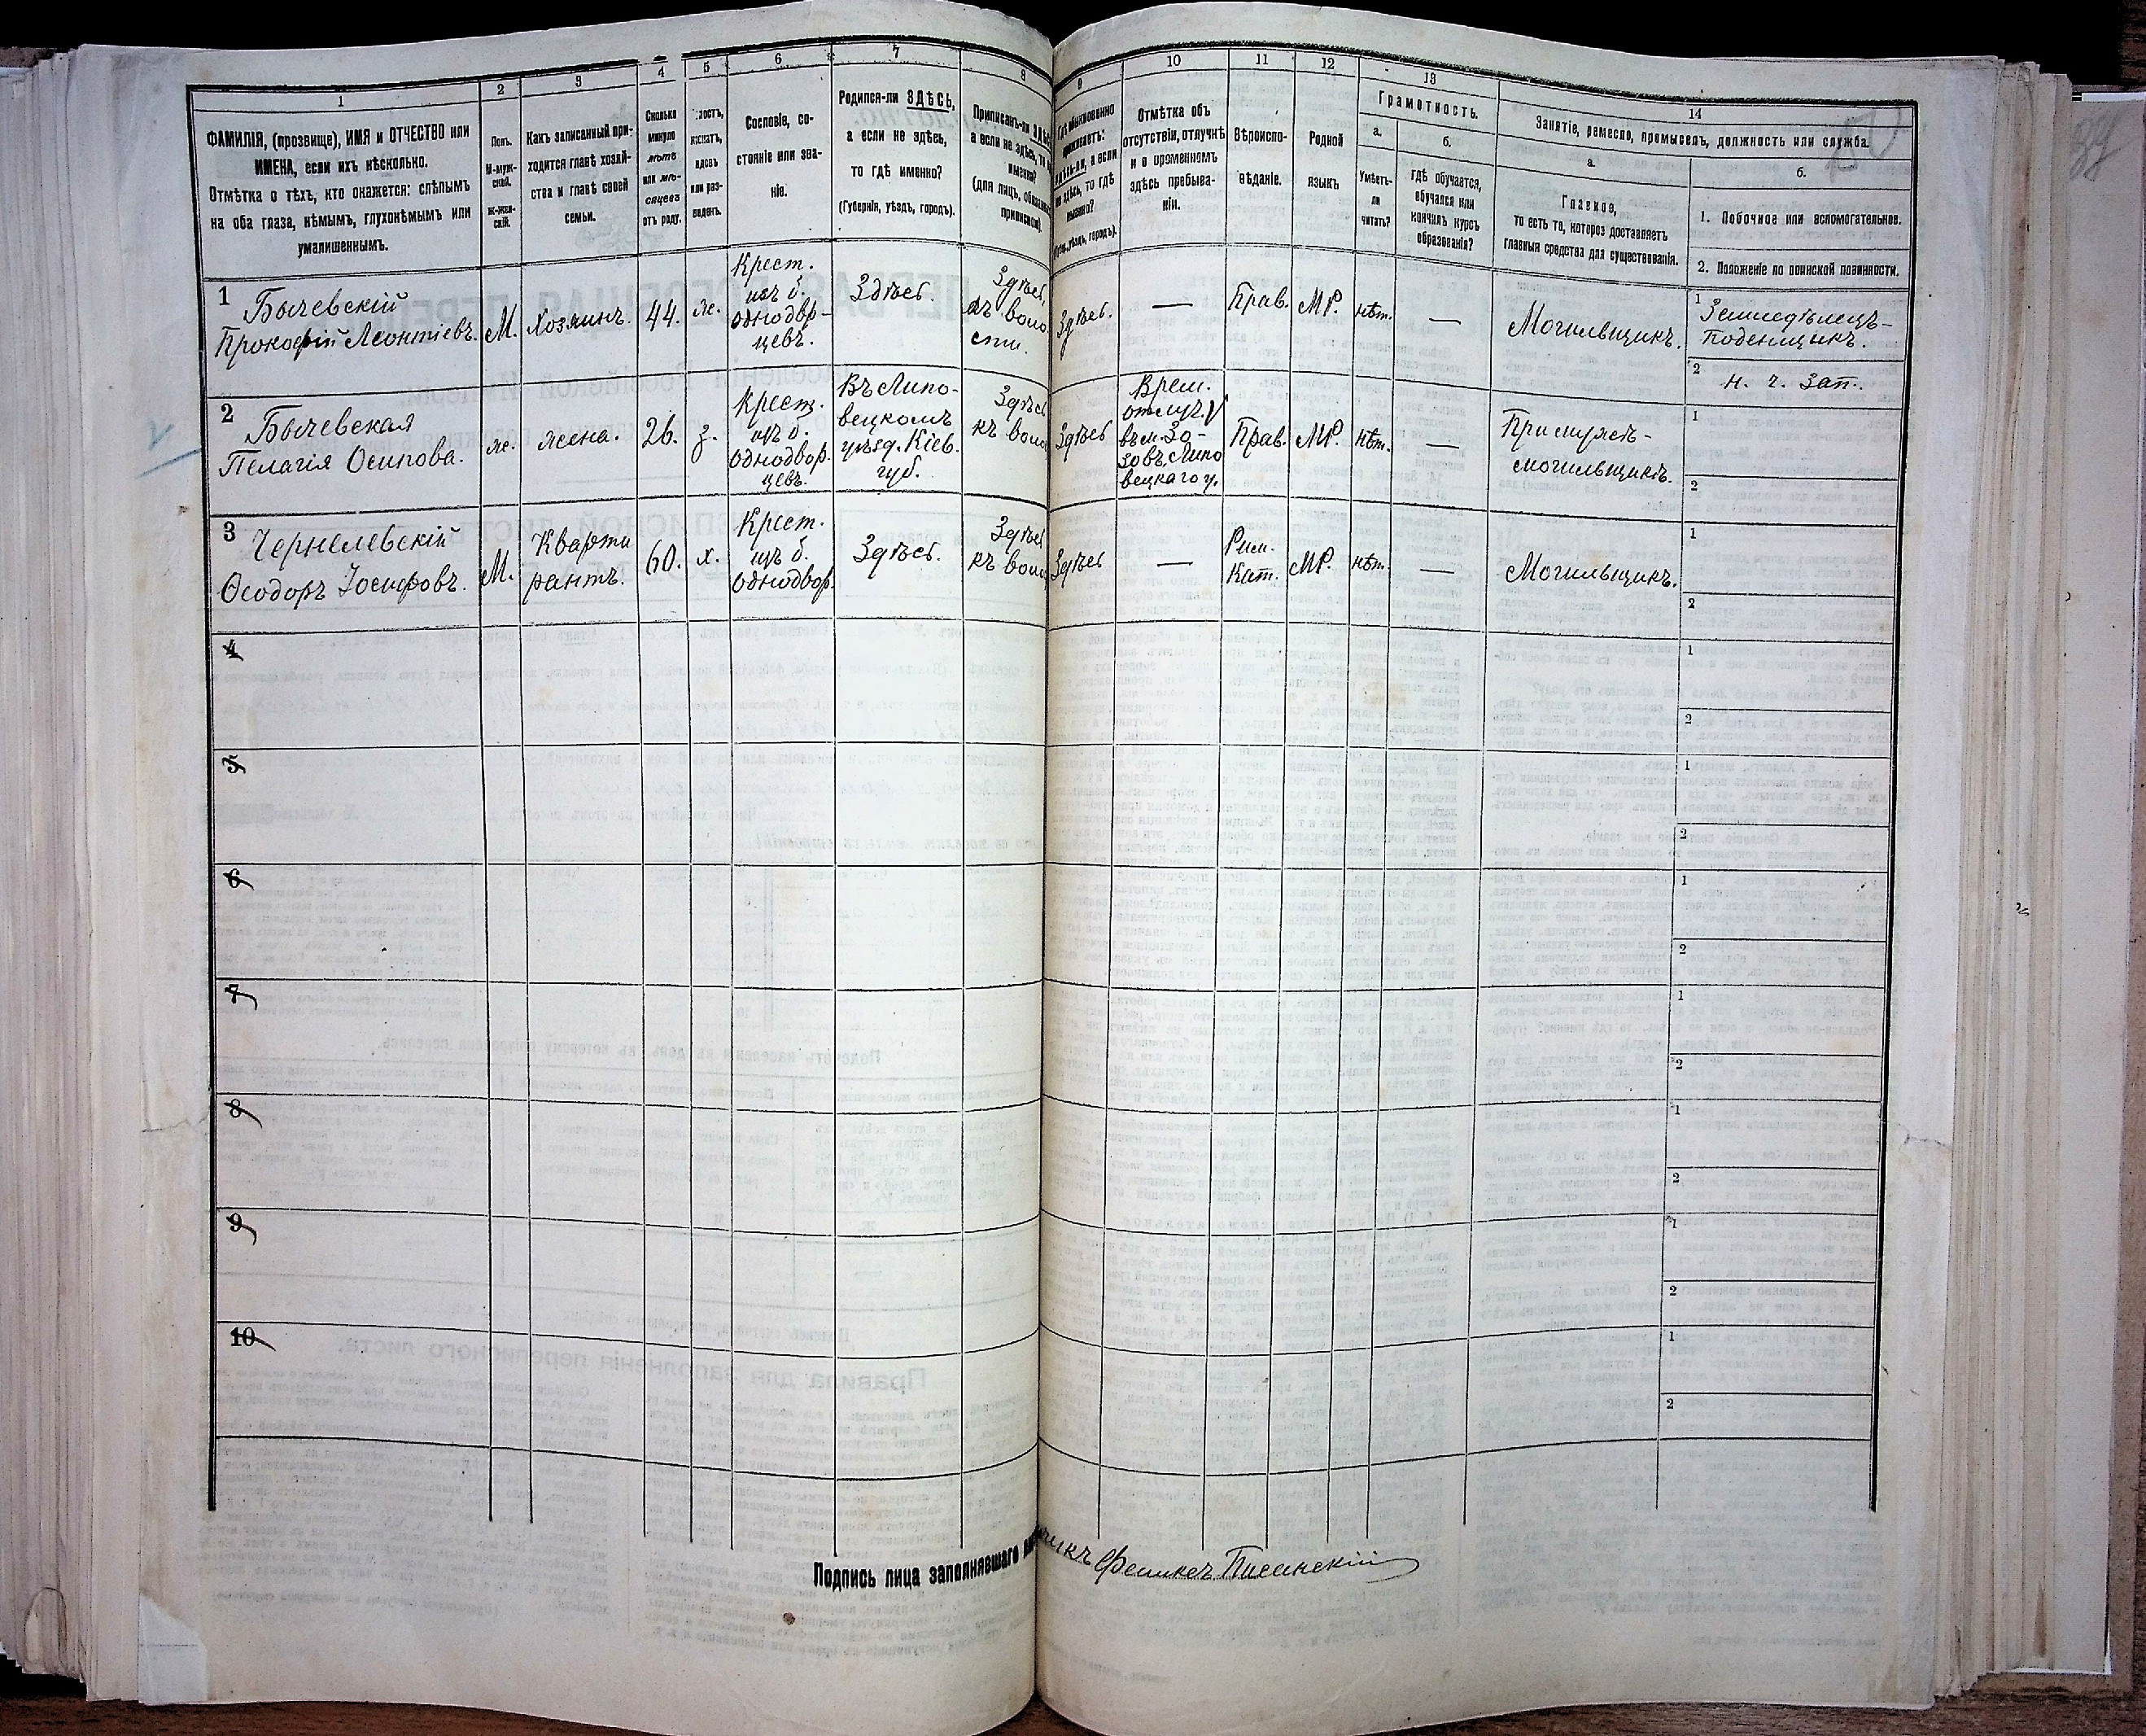 1
2
3
4
5
6
7
8
ФАМИЛІЯ, (прозвище), ИМЯ и ОТЧЕСТВО или
ИМЕНА, если ихъ нѣсколько.
Отмѣтка о тѣхъ, кто окажется: слѣпымъ
на оба глаза, нѣмымъ, глухонѣмымъ или
умалишеннымъ.
Полъ.
М-муж-
ской.
Ж-жен-
скій.
Какъ записанный при-
ходится главѣ хозяй-
ства и главѣ своей
семьи.
Сколько
минуло
лѣтъ
или мѣ-
сяцевъ
отъ роду.
холостъ,
женатъ,
вдовъ
или раз-
веденъ.
Сословіе, со-
стояніе или зва-
ніе.
Родился-ли ЗДѢСЬ,
а если не здѣсь,
то гдѣ именно?
(Губернія, уѣздъ, городъ).
Приписанъ-ли
а если не здѣсь, то
именно?
(для лицъ,
9
10
11
12
13
14
здѣсь-ли, а если
не здѣсь, то гдѣ
именно?
уѣздъ, городъ).
Отмѣтка объ
отсутствіи, отлучкѣ
и о временномъ
здѣсь пребыва-
ніи.
Вѣроиспо-
вѣданіе.
Родной
языкъ
Грамотность.
а.
б.
Умѣетъ-
ли
читать?
гдѣ обучается,
обучался или
кончилъ курсъ
образованія?
Занятіе, ремесло, промыселъ, должность или служба.
а.
б.
Главное,
то есть то, которое доставляетъ
главныя средства для существованія.
1. Побочное или вспомогательное.
2. Положеніе по воинской повинности.
1
Бычевскій
Прокофій Леонтіевъ.
М.
Хозяинъ.
44.
ж.
Крест.
изъ б.
однодвр-
цевъ.
Здѣсь.
Здѣсь,
въ воло
сти.
Здѣсь.
—
Прав.
МР.
нѣт.
—
Могильщикъ.
1
Земледѣлецъ-
поденщикъ.
2
н. ч. зап.
2
Бычевская
Пелагія Осипова.
ж.
жена.
26.
з.
Крест.
изъ б.
однодвор.
цевъ.
Въ Липо-
вецкомъ
уѣзд. Кіев.
губ.
Здѣсь
къ воло
Здѣсь
Врем.
отлуч.
въ м. Зо-
зовъ, Липо
вецкаго у.
Прав.
МР.
нѣт.
—
При мужѣ-
могильщикѣ.
1
2
3
Чернелевскій
Ѳеодоръ Іосифовъ.
М.
Кварти
рантъ.
60.
х.
Крест.
изъ б.
однодвор.
Здѣсь.
Здѣсь
къ воло
Здѣсь
—
Рим.
Кат.
МР.
нѣт.
—
Могильщикъ.
1
2
4
1
2
5
1
2
6
1
2
7
1
2
8
1
2
9
1
2
10
1
2
Подпись лица заполнявшаго
Феликсъ